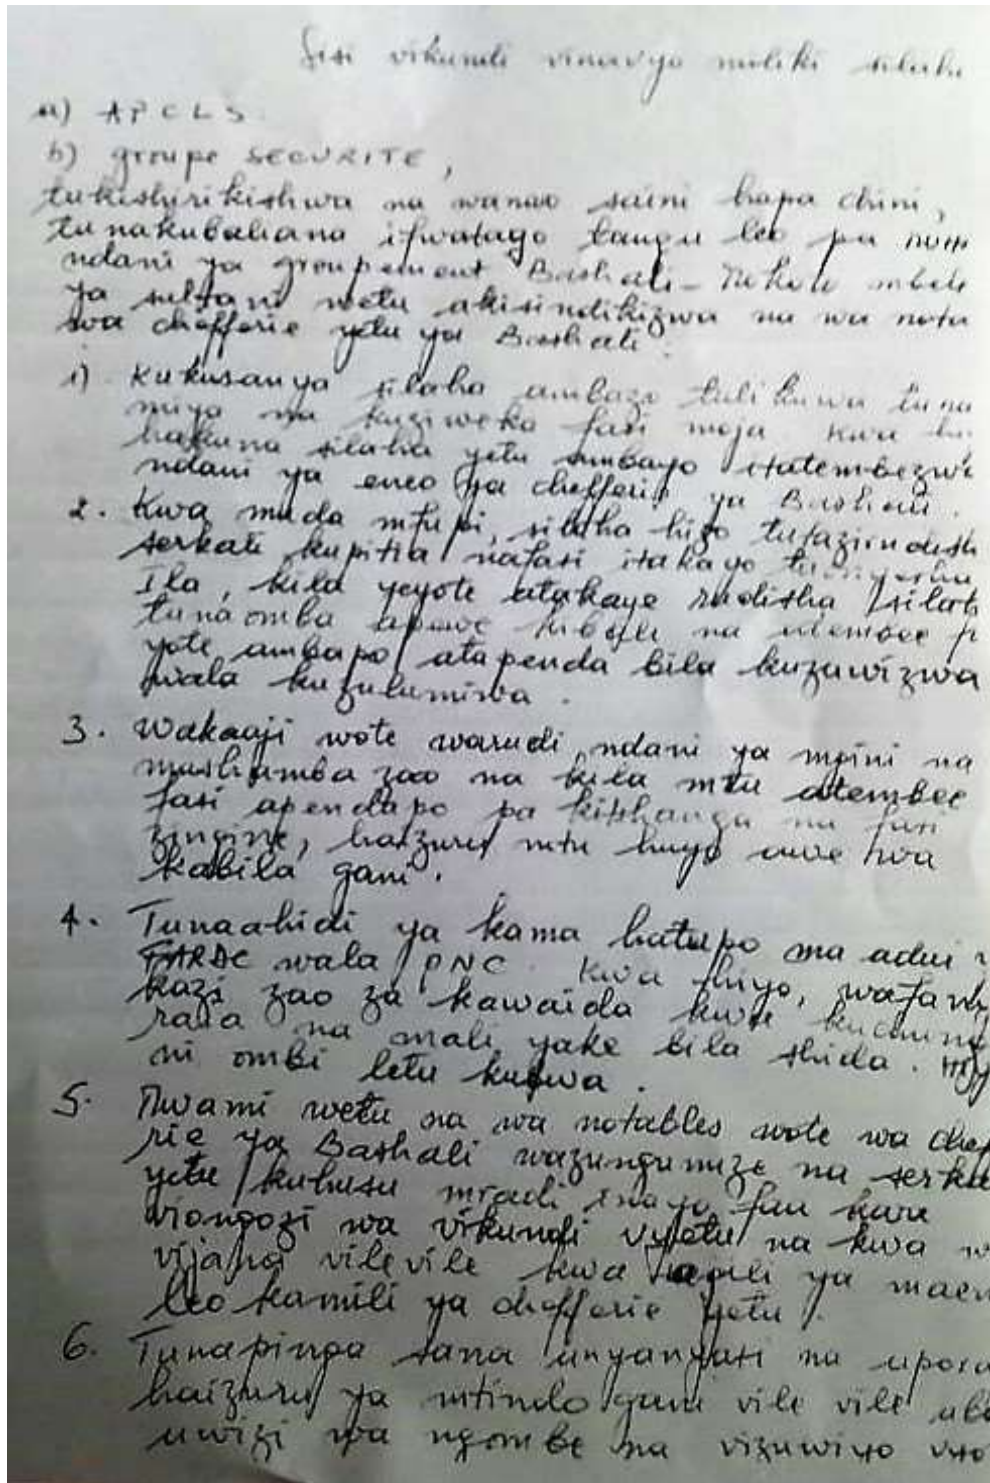 Sisi vikundi vinavyo miliki silaha
a) APCLS
b) groupe SECURITE,
tukishirikishwa na wanao saini hapa chini,
tunakubaliana ifwatayo tangu leo pa
ndani ya groupement Bashali-Mokoto mbele
ya sultani wetu akisindikizwa na wa nota
wa chefferie yetu ya Bashali.
1) Kukusanya silaha ambazo tulikuwa tuna
na kuziweka fasi moja kwa
hakuna silaha yetu ambayo itatembezwa
ndani ya eneo ya chefferie ya Bashali.
2. Kwa muda mfupi, silaha hizo tutazirudish
serkali kupitia nafasi itakayo
Ila, kila yeyote atakaye rudisha silah
tunaomba apewe na atembee p
yote ambapo atapenda bila kuzawizwa
wala kuzulumiwa.
3. Wakaaji wote warudi ndani ya mgini na
mashamba zao na kila mtu atembee
fasi apendapo pa kitshanga na fasi
zingine, haizuru mtu huyo awe wa
kabila gani.
4. Tunaahidi ya kama hatupo ma adui
FARDC wala PNC. Kwa hiyo, wafany
kazi zao za kawaida kwa kuchunga
raia na mali yake bila shida.
ni ombi letu kubwa.
5. Mwami wetu na wa notables wote wa chef
rie ya Bashali wazungumuze na serka
yetu kuhusu miradi inayo faa kwa
viongozi wa vikundi vyetu na kwa
vijana vilevile kwa ajili ya maen
leo kamili ya chefferie yetu.
6. Tunapinga sana unyanyasi na upora
haizuru ya mtindo gani vile vile
uwizi wa ngombe na vizuwiyo vyo